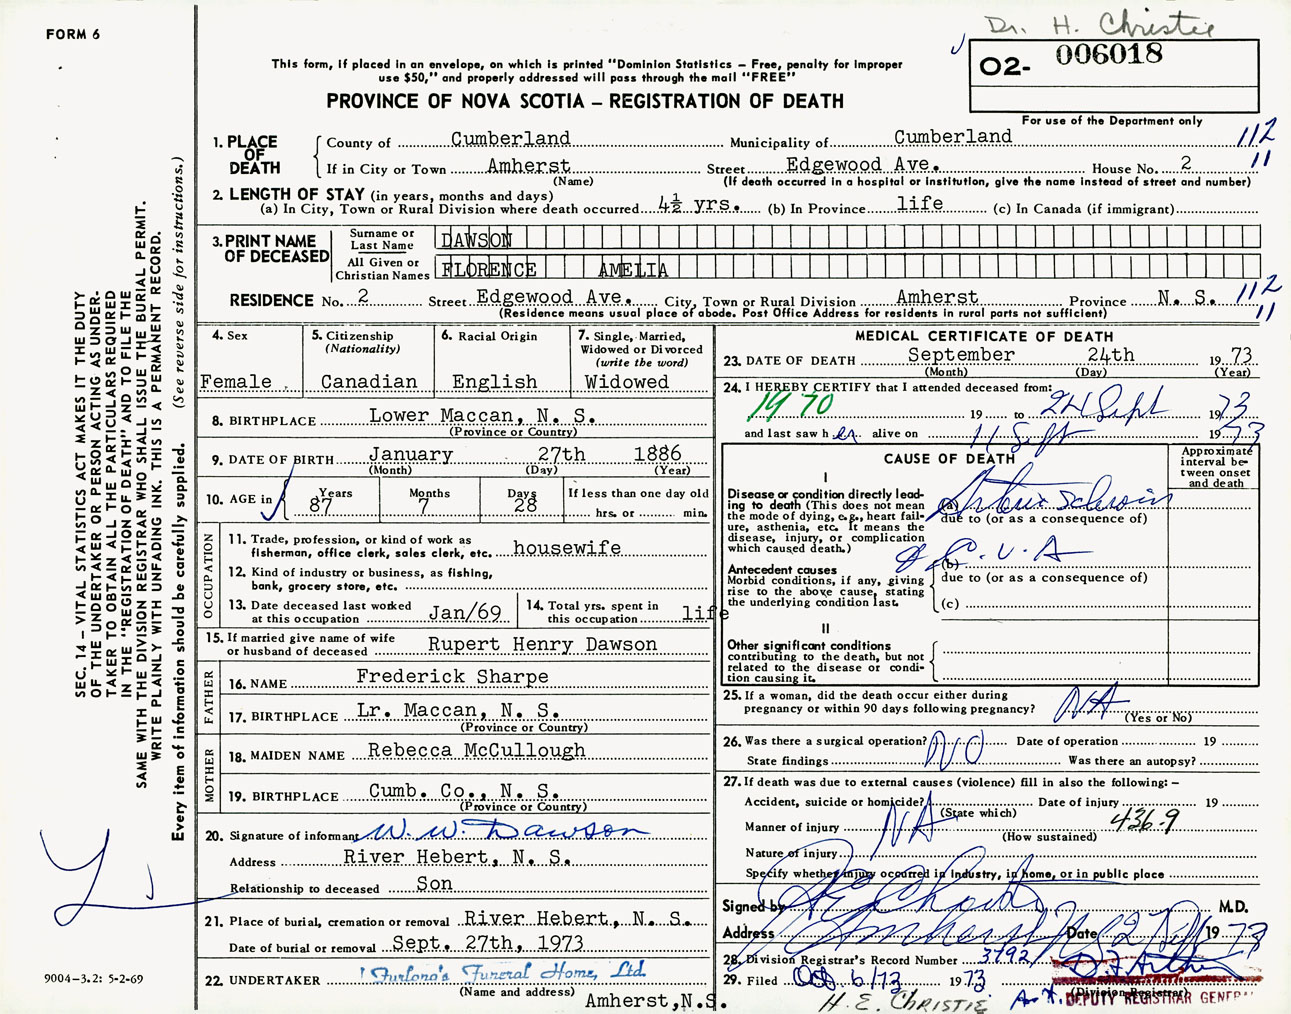 FORM 6
Dr. H. Christie
O2- 006018
For use of the Department only
This form, if placed in an envelope, on which is printed "Dominion Statistics – Free, penalty for improper
use $50," and properly addressed will pass through the mail "FREE"
PROVINCE OF NOVA SCOTIA – REGISTRATION OF DEATH
SEC. 14 – VITAL STATISTICS ACT MAKES IT THE DUTY
OF THE UNDERTAKER OR PERSON ACTING AS UNDER-
TAKER TO OBTAIN ALL THE PARTICULARS REQUIRED
IN THE "REGISTRATION OF DEATH" AND TO FILE THE
SAME WITH THE DIVISION REGISTRAR WHO SHALL ISSUE THE BURIAL PERMIT.
WRITE PLAINLY WITH UNFADING INK. THIS IS A PERMANENT RECORD.
Every item of information should be carefully supplied. (See reverse side for instructions.)
1. PLACE OF DEATH
County of Cumberland Municipality of Cumberland 112
If in City or Town Amherst Street Edgewood Ave. House No. 2 11
(Name) (If death occurred in a hospital or institution, give the name instead of street and number)
2. LENGTH OF STAY (in years, months and days)
(a) In City, Town or Rural Division where death occurred 4½ yrs. (b) In Province life (c) In Canada (if immigrant)
3. PRINT NAME OF DECEASED
Surname or Last Name DAWSON
All Given or Christian Names FLORENCE AMELIA
RESIDENCE No. 2 Street Edgewood Ave. City, Town or Rural Division Amherst Province N. S. 112
(Residence means usual place of abode. Post Office Address for residents in rural parts not sufficient) 11
4. Sex
Female
5. Citizenship
(Nationality)
Canadian
6. Racial Origin
English
7. Single, Married,
Widowed or Divorced
(write the word)
Widowed
8. BIRTHPLACE Lower Maccan, N. S.
(Province or Country)
9. DATE OF BIRTH January 27th 1886
(Month) (Day) (Year)
10. AGE in Years Months Days If less than one day old
87 7 28 hrs. or min.
OCCUPATION
11. Trade, profession, or kind of work as
fisherman, office clerk, sales clerk, etc. housewife
12. Kind of industry or business, as fishing,
bank, grocery store, etc.
13. Date deceased last worked
at this occupation Jan/69
14. Total yrs. spent in
this occupation life
15. If married give name of wife
or husband of deceased Rupert Henry Dawson
FATHER
16. NAME Frederick Sharpe
17. BIRTHPLACE Lr. Maccan, N. S.
(Province or Country)
MOTHER
18. MAIDEN NAME Rebecca McCullough
19. BIRTHPLACE Cumb. Co., N. S.
(Province or Country)
20. Signature of informant W. W. Dawson
Address River Hebert, N. S.
Relationship to deceased Son
21. Place of burial, cremation or removal River Hebert, N. S.
Date of burial or removal Sept. 27th, 1973
22. UNDERTAKER Furlong's Funeral Home, Ltd.
(Name and address)
Amherst, N.S.
9004–3.2: 5-2-69
MEDICAL CERTIFICATE OF DEATH
23. DATE OF DEATH September 24th 1973
(Month) (Day) (Year)
24. I HEREBY CERTIFY that I attended deceased from:
1970 19 to 24 Sept 1973
and last saw h er alive on 11 Sept 1973
CAUSE OF DEATH
Approximate
interval be-
tween onset
and death
I
Disease or condition directly lead-
ing to death (This does not mean
the mode of dying, e.g., heart fail-
ure, asthenia, etc. It means the
disease, injury, or complication
which caused death.)
(a)
due to (or as a consequence of)
Antecedent causes
Morbid conditions, if any, giving
rise to the above cause, stating
the underlying condition last.
(b) C.V.A
due to (or as a consequence of)
(c)
II
Other significant conditions
contributing to the death, but not
related to the disease or condi-
tion causing it.
25. If a woman, did the death occur either during
pregnancy or within 90 days following pregnancy? NA
(Yes or No)
26. Was there a surgical operation? NO Date of operation 19
State findings Was there an autopsy?
27. If death was due to external causes (violence) fill in also the following: –
Accident, suicide or homicide? Date of injury 19
(State which)
NA
Manner of injury 436.9
(How sustained)
Nature of injury
Specify whether injury occurred in industry, in home, or in public place
Signed by M.D.
Address Amherst Date 19 73
28. Division Registrar's Record Number
29. Filed Oct. 6/73 1973
(Division Registrar)
DEPUTY REGISTRAR GENERAL
H. E. CHRISTIE